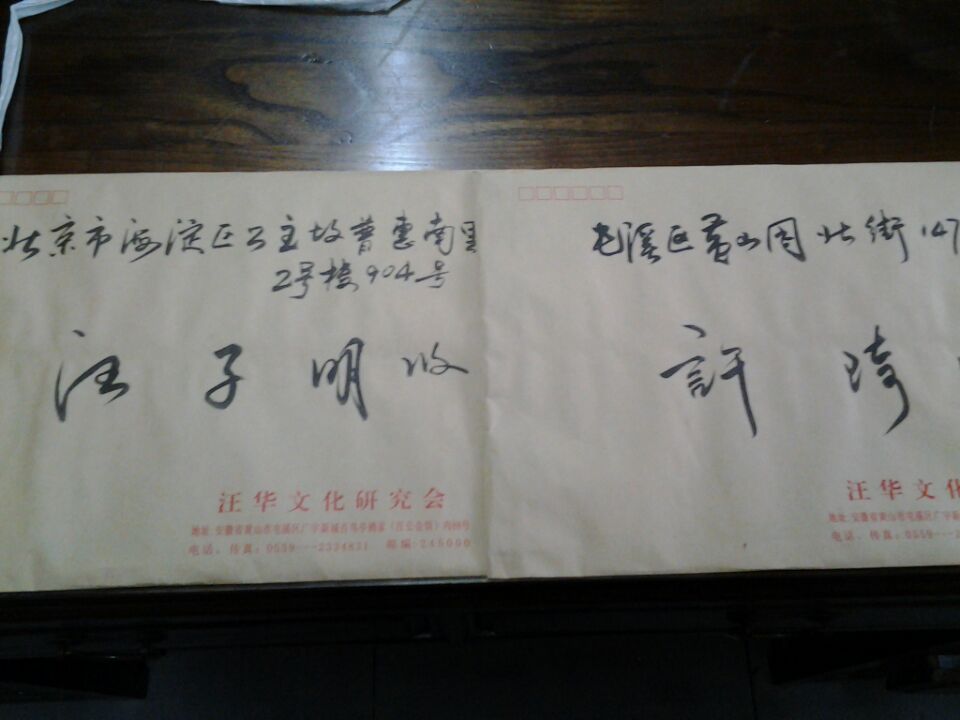 北京市海淀区公主坟普惠南里
2号楼904号
汪子明收
汪华文化研究会
地址:安徽省黄山市屯溪区广宇新城百鸟亭
电话、传真:0559---2334831 邮编:245000
屯溪区黄山园北街147
許琦
汪华文化
地址:安徽省黄山市屯溪区广宇新
电话、传真:0559---2